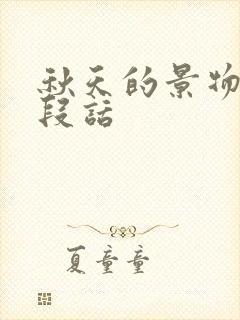 秋天的景物
段话
夏童童